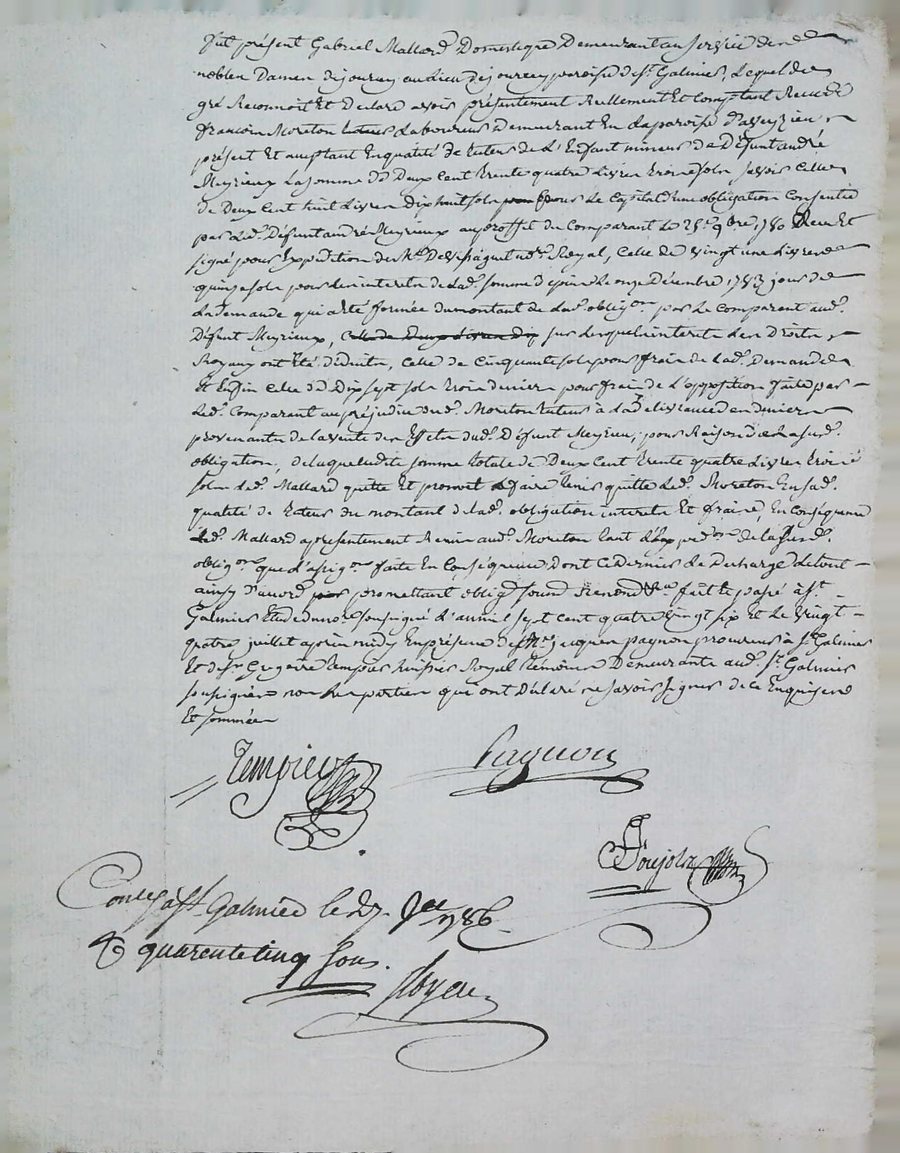 fut présent Gabriel Mallard Domestique Demeurant au service de
nobles Dames de jourcey au lieu de jourcey paroisse de st. Galmier, Lequel de
gré Reconnoit Et Declare avoir présentement Réellement Et Comptant Receu de
françois Moreton Laboureur Demeurant En la paroisse D'aveyzieu
présent Et acceptant En qualité de tuteur de L'Enfant mineur de Défunt andré
Meyrieux La somme de Deux Cent trente quatre Livres trois sols savoir Celle
de Deux Cent huit Livres Dix huit sols pour Le Capital d'une obligation Consentie
par Led. Défunt andré Meyrieux au proffit du Comparant le 25e. 9bre. 1780 Receu Et
signé pour Expédition Me. Royal, Celle de vingt une Livres
quinze sols pour les interets de lad. somme depuis Le onze Décembre 1783 jour de
La demande qui a été formée du montant de lad. oblig.on par Le Comparant aud.
Défunt Meyrieux, sur Lesquels interets Les Droits
Royaux ont Eté déduits, Celle de Cinquante sols pour frais de Lad. Demande
Et Enfin Celle de Dix sept sols trois deniers pour frais de L'opposition faite par
Led. Comparant au préjudice dud. Moreton tuteur à La délivrance des deniers
provenants de la vente des Effets dud. Défunt Meyrieu, pour Raison de la susd.
obligation, de laquelle dite somme totale de Deux Cent trente quatre Livres trois
sols Led. Mallard quitte Et promet faire tenir quitte Led. Moreton En sad.
qualité de tuteur du montant de lad. obligation interets Et frais, En Conséquence
Led. Mallard a présentement Remis aud. Moreton tant L'Exped.on de la susd.
oblig.on que L'assig.on faite En Conséquence, dont Ce dernier Le Décharge Le tout
ainsy d'accord promettant oblig.t soum.t Renonc.t fait Et passé à st.
Galmier Etude du no.re soussigné L'an mil sept Cent quatre vingt six Et Le vingt
quatre juillet après midy En présence de Me. jacques pagnon procureur à st. Galmier
Et de sr. Grégoire tempier huissier Royal témoins Demeurants aud. st. Galmier
soussignés non Les parties qui ont Déclaré ne savoir signer de Ce Enquises
Et sommées
Tempier
Pagnon
Poujols
Con.lé à st. Galmier le 27. 1786
quarente cinq sous.